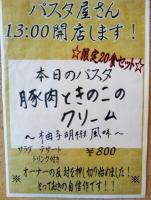 パスタ屋さん
13:00開店します！
☆限定20食セット☆
本日のパスタ
豚肉ときのこの
クリーム
～柚子胡椒風味～
サラダ デザート
ドリンク付き ¥800
※オーナーの反対を押し切り始めました！
とっておきの自信作です！！